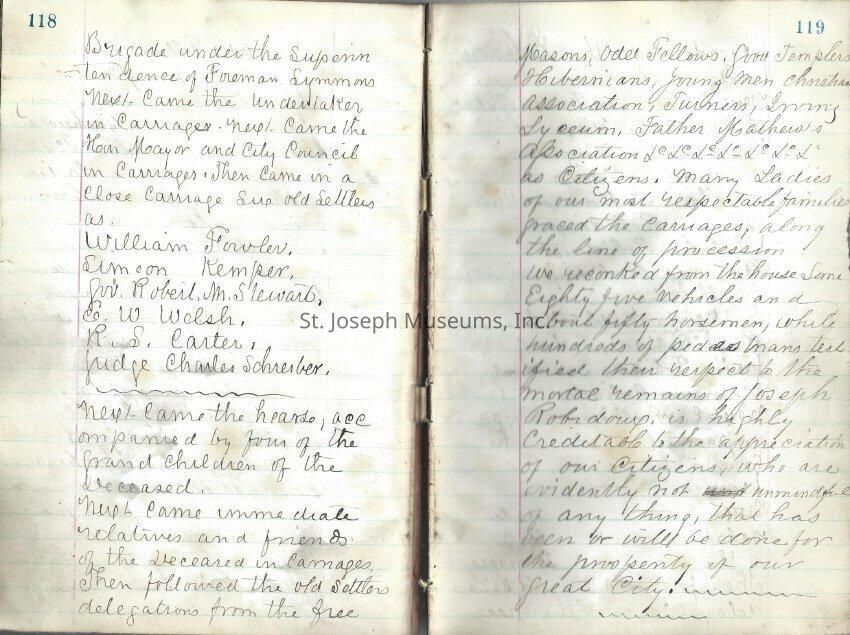 118
Brigade under the Superin
tendence of Foreman Symmons
Next Came the undertaker
in Carriages. next Came the
Hon Mayor and City Council
in Carriages. Then Came in a
Close Carriage Six old Settlers
as.
William Fowler.
Simeon Kemper.
Gov. Robert. M. Stewart.
E. W Welsh.
R. S. Carter.
Judge Charles Schreiber.
Next Came the hearse, acc
ompanied by four of the
Grand Children of the
Deceased.
Next Came immediate
relatives and friends
of the Deceased in Carriages.
Then followed the old Settlers
delegations from the free
119
Masons, Odd Fellows, Good Templers
Hibernians, Young Men Christian
association, Turners, Irving
Lyceum, Father Mathew's
association &c &c &c &c &c &c &c
as Citizens. Many Ladies
of our most respectable families
graced the Carriages, along
the line of procession
We reconked from the house Some
Eighty five Vehicles and
about fifty horsemen, while
hundreds of pedestrians test
ified their respect to the
mortal remains of Joseph
Robidoux. is highly
Creditable to the appreciation
of our Citizens, who are
evidently not unmindful
of any thing, that has
been or will be done for
the prosperity of our
great City.
St. Joseph Museums, Inc.